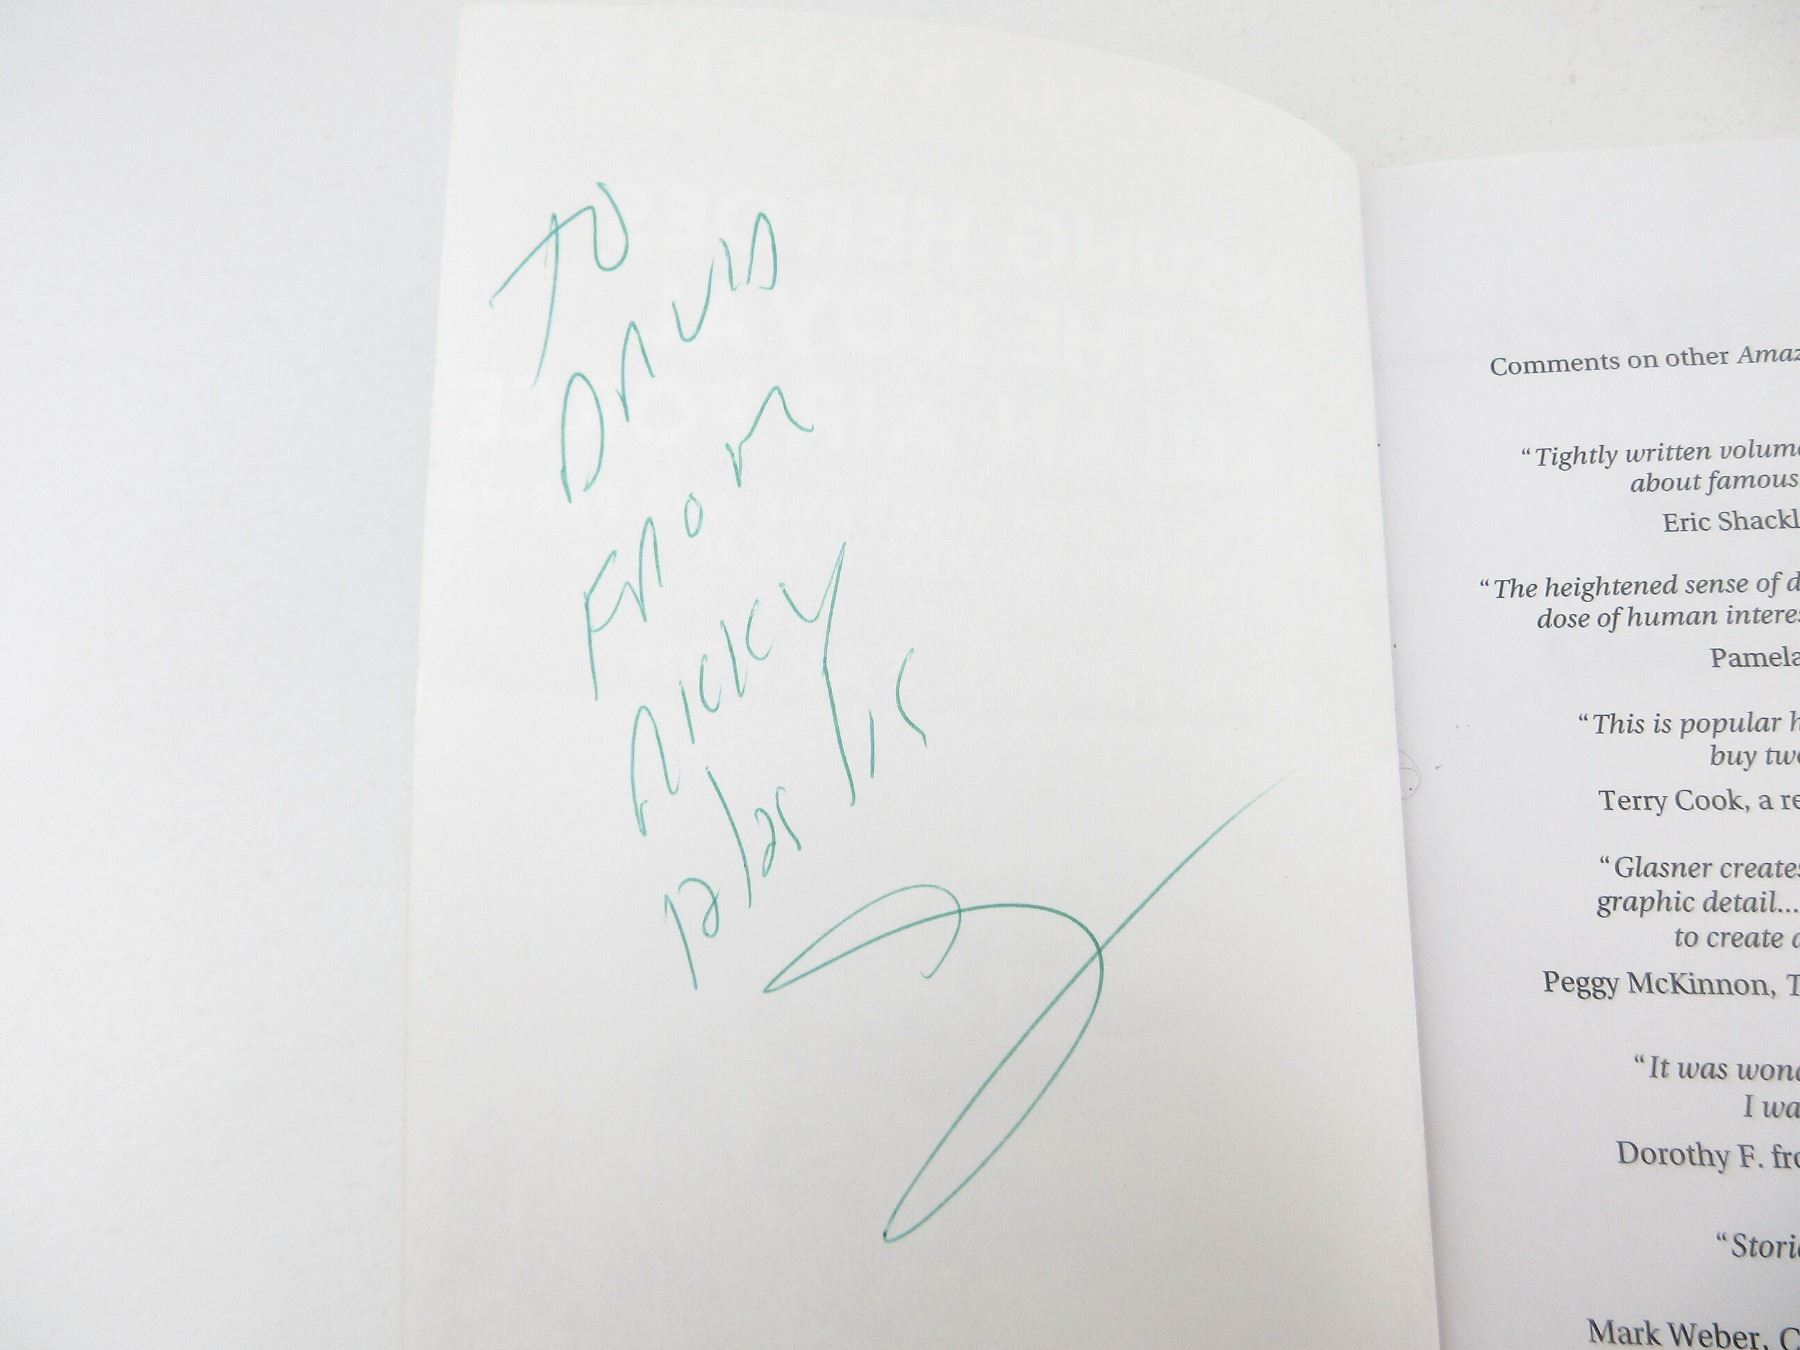 TO
DAVID
FROM
RICKY
12/25/15
Comments on other Amaz
“Tightly written volume
about famous
Eric Shackl
“The heightened sense of d
dose of human interes
Pamela
“This is popular h
buy two
Terry Cook, a re
“Glasner creates
graphic detail...
to create a
Peggy McKinnon, T
“It was wond
I wa
Dorothy F. fro
“Storie
Mark Weber, C